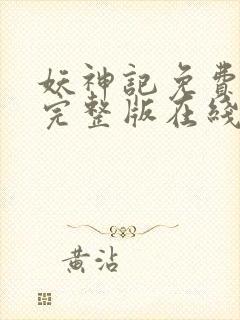 妖神記免費
完整版在綫
黃沾